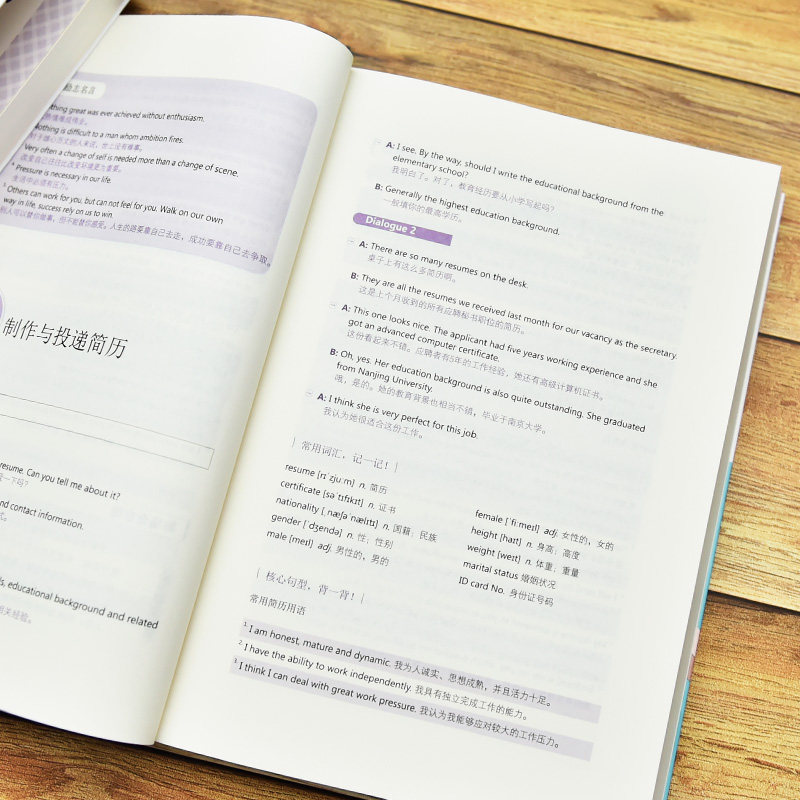 励志名言
thing great was ever achieved without enthusiasm.
Nothing is difficult to a man whom ambition fires.
对于雄心万丈的人来说，世上没有难事。
Very often a change of self is needed more than a change of scene.
改变自己往往比改变环境更为重要。
Pressure is necessary in our life.
生活中必须有压力。
Others can work for you, but can not feel for you. Walk on our own
way in life, success rely on us to win.
别人可以替你做事，但不能替你感受。人生的路要靠自己去走，成功要靠自己去争取。
制作与投递简历
resume. Can you tell me about it?
一下吗？
and contact information.
式。
educational background and related
相关经验。
A: I see. By the way, should I write the educational background from the
elementary school?
我明白了。对了，教育经历要从小学写起吗？
B: Generally the highest education background.
一般填你的最高学历。
Dialogue 2
A: There are so many resumes on the desk.
桌子上有这么多简历啊。
B: They are all the resumes we received last month for our vacancy as the secretary.
这是上个月收到的所有应聘秘书职位的简历。
A: This one looks nice. The applicant had five years working experience and she
got an advanced computer certificate.
这份看起来不错。应聘者有5年的工作经验，她还有高级计算机证书。
B: Oh, yes. Her education background is also quite outstanding. She graduated
from Nanjing University.
哦，是的。她的教育背景也相当不错，毕业于南京大学。
A: I think she is very perfect for this job.
我认为她很适合这份工作。
常用词汇，记一记！
resume [rɪˈzjuːm] n. 简历
certificate [səˈtɪfɪkɪt] n. 证书
nationality [ˌnæʃəˈnælɪtɪ] n. 国籍；民族
gender [ˈdʒendə] n. 性；性别
male [meɪl] adj. 男性的，男的
female [ˈfiːmeɪl] adj. 女性的，女的
height [haɪt] n. 身高；高度
weight [weɪt] n. 体重；重量
marital status 婚姻状况
ID card No. 身份证号码
核心句型，背一背！
常用简历用语
1 I am honest, mature and dynamic. 我为人诚实、思想成熟，并且活力十足。
2 I have the ability to work independently. 我具有独立完成工作的能力。
3 I think I can deal with great work pressure. 我认为我能够应对较大的工作压力。